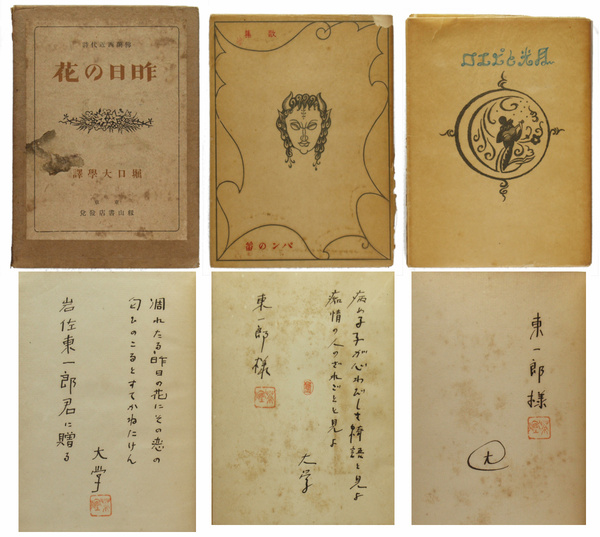 昨日の花
堀口大學譯
東京
籾山書店發兌
詩集
パンの笛
月光とピエロ
凋れたる昨日の花にその恋の
匂ひのこるとすてかねたけん
大学
岩佐東一郎君に贈る
病める子が心わびしき綺語と見よ
痴情の人のざれごとと見よ
大学
東一郎様
東一郎様
大